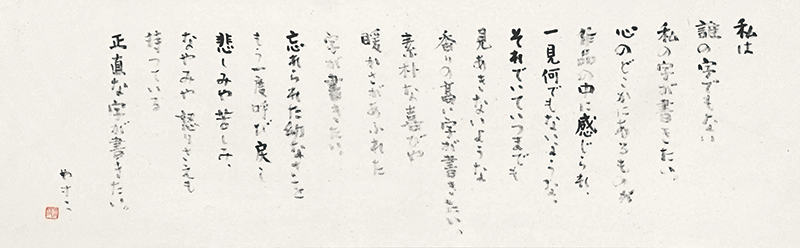 私は
誰の字でもない
私の字が書きたい。
心のどこかにあるものが
作品の中に感じられ、
一見何でもないような、
それでいていつまでも
見あきないような
香りの高い字が書きたい、
素朴な喜びや
暖かさがあふれた
字が書きたい。
忘れられた幼なさを
もう一度呼び戻し
悲しみや苦しみ、
なやみや怒りさえも
持っている
正直な字が書きたい。
やすこ